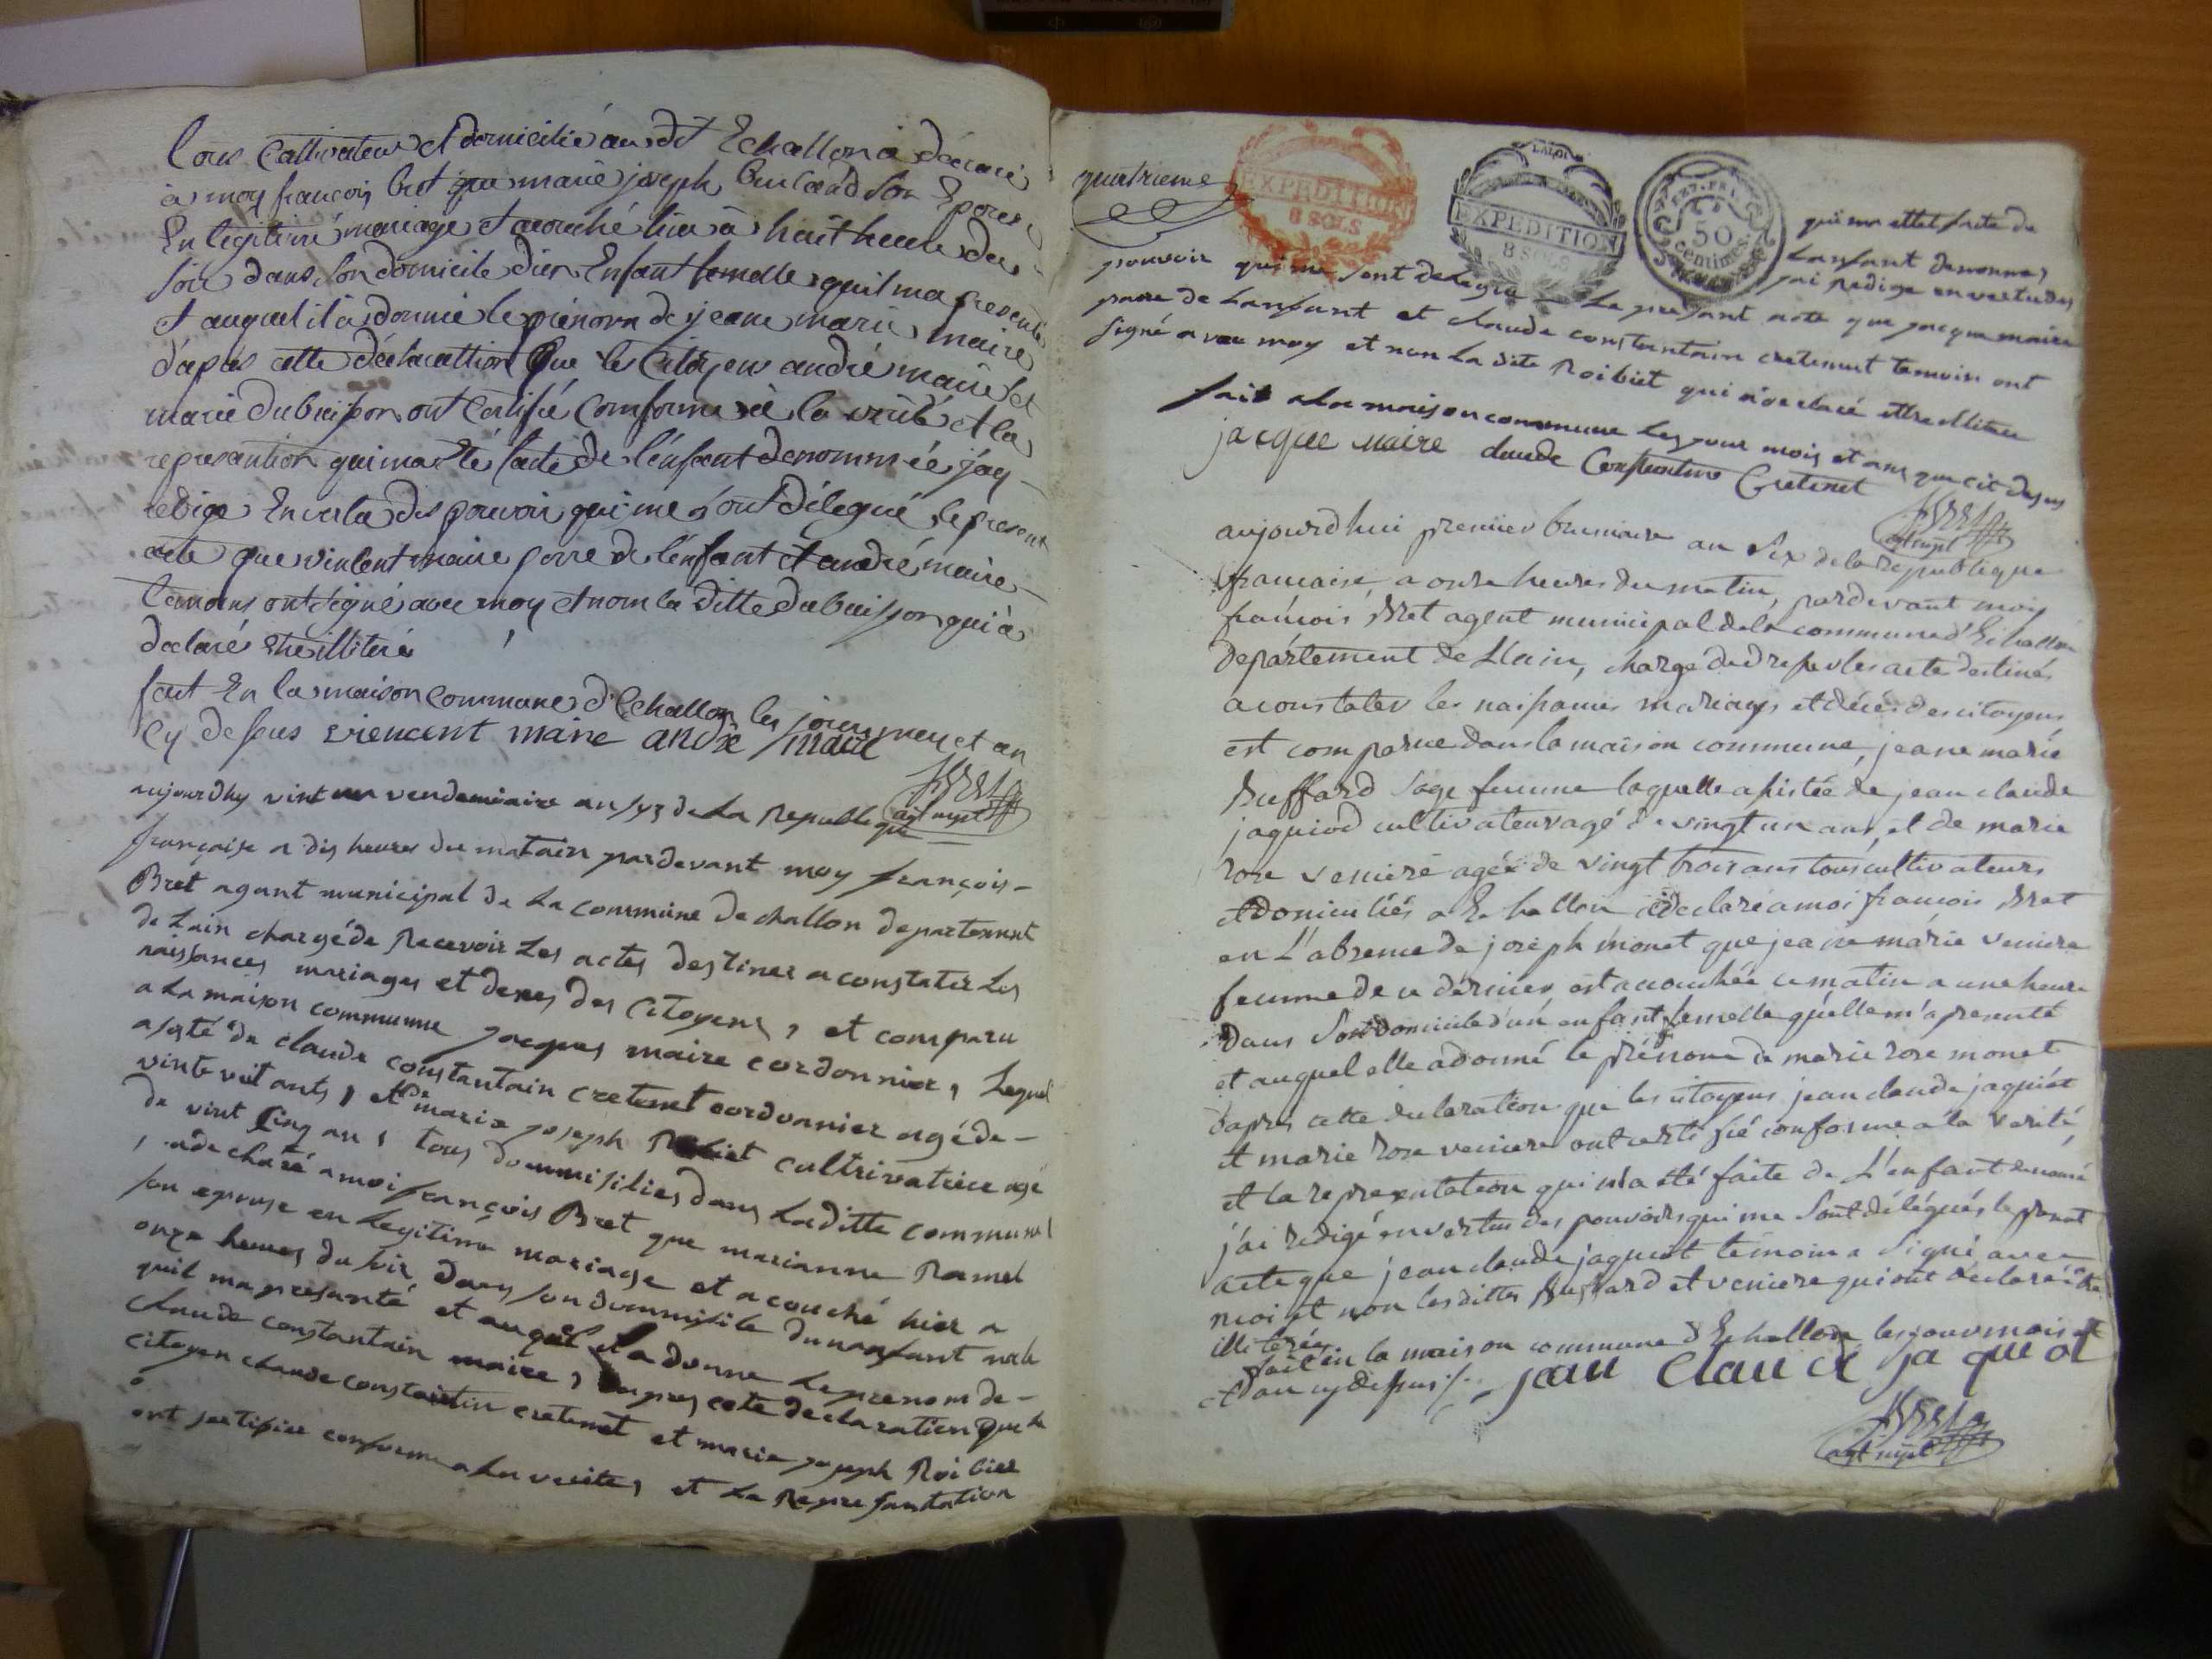 tous Cultivateurs et domicilié au dit Echallon à déclaré
à moy françois bret que marie joseph burland son Epouse
En légitime mariage et acouché hier à huit heure du
soir dans son domicile d'un Enfant femelle quil ma presenté
et auquel il à donné le prénom de jeane marie maire
d'après cette déclaration Que les Citoyens andré maire et
marie dubuisson ont Certifié Conforme à la vérité et la
represantion qui ma Eté faite de l'énfant denommée j'ay
rédigé En vertu des pouvoir qui me sont délegué le present
acte que vinlent maire perre de l'énfant et andré maire
temoins ont signé avec moy et nom la ditte dubuisson qui à
declaré Etre illiteré
fait En la maison Commune d'Echallon les jour mey et an
Cy dessus viencent maire andré maire
agt mpl
aujourdhy vint un vendemiaire an syz de La Republeque
françoise a dis heures du matain pardevant moy françois
Bret agant municipal de La commune dechallon departement
de Lain chargé de Recevoir Les actes destines a constater Les
naissances mariages et deses des citoyens, et comparu
a La maison commune jacques maire cordonnier, Lequel
asisté de claude constantain cretenet cordonnier agé de
vinte vuit ants, et de marie joseph Roibiet cultrivatrice agé
de vint cinq an, tous dommisiliés dans Laditte commune
, a de claré a moi françois Bret que marianne Ramel
son epouse en Legitime mariage et acouché hier a
onze heures du soir dans son dommisile dun anfant male
quil ma presanté et auquel il a donne Le prenom de
claude constantain maire, d'apres cete declaration Que le
citoyen claude constaintin cretenet et marie joseph Roibier
ont sertifiee conforme a La verites et La Represantation
quatrieme
EXPEDITION
8 SOLS
LA LOI
EXPEDITION
8 SOLS
50
centimes.
qui ma ettet faite de
Lanfant denommes
jai redige en vertu des
pouvoir qui me sont delegue Le presant acte que jacque maire
paire de Lanfant et claude constantain cretenent temoin ont
signé avec moy et non La dite Roibiet qui a declaré ettre illitere
fait a La maison commune Les jour mois et ans que cit desus
jacque maire claude Constantin Cretenet
agt mpl
aujourd'hui premier brumaire an Six de la republique
francaise, a onze heures du matin, pardevant moy
françois Bret agent municipal de la commune d'Echallon
département de L'ain, chargé de dresser les acte destinés
a constater les naissances mariages et décés des citoyens
est comparue dans la maison commune, jeane marie
Buffard sage femme laquelle assistée de jean claude
jaquiod cultivateur agé de vingt un ans, et de marie
rose veniere agée de vingt trois ans tous cultivateurs
et domiciliés a Echallon a déclaré a moi francois Bret
en L'absence de joseph monet que jeane marie veniere
femme de ce dernier est accouchée ce matin a une heure
dans son domicile d'un enfant femelle quélle m'a presenté
et auquel elle a donné le prénom de marie rose monet
daprés cette declaration que les citoyens jean claude jaquiot
et marie rose veniere ont certifié conforme a la verité,
et la representation qui m'a été faite de L'enfant denomé
j'ai redigé en vertu des pouvoirs qui me sont délégués le present
acte que jean claude jaquiot témoin a signé avec
moi et non les dittes Buffard et veniere qui ont déclaré être
illitérée
fait en la maison commune d'Echallon les jour mois et
et an cy dessus /.
jean claude jaquiot
agt mpl